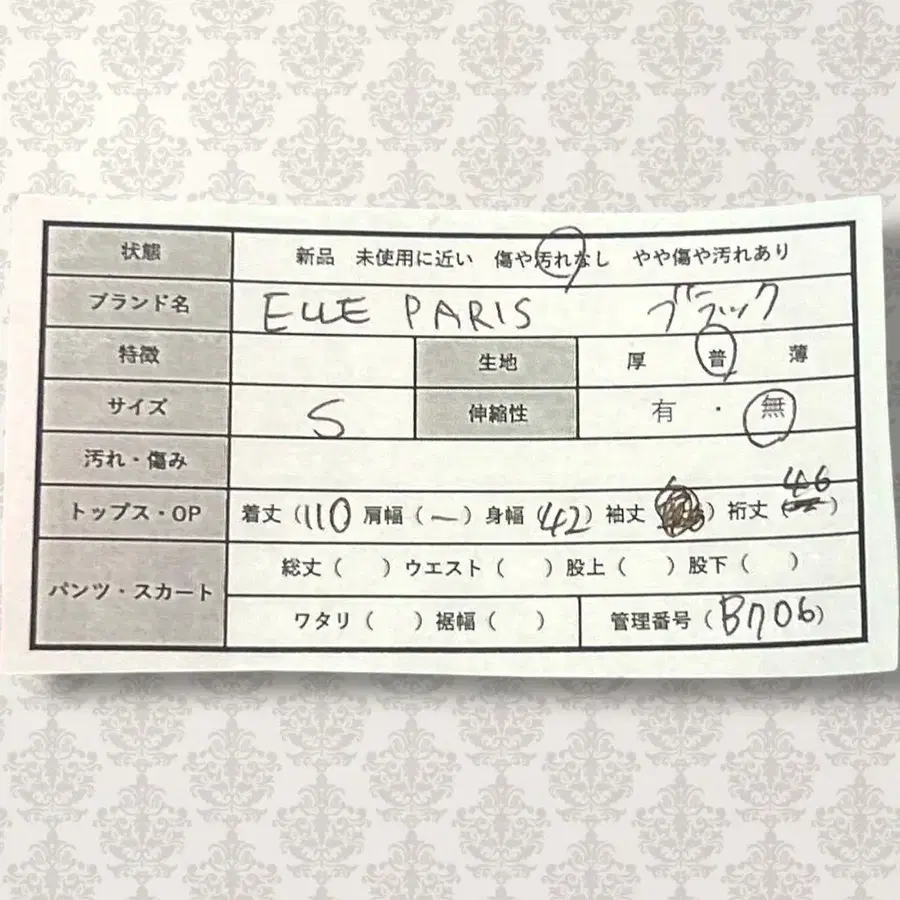 状態 新品 未使用に近い 傷や汚れなし やや傷や汚れあり
ブランド名 ELLE PARIS ブラック
特徴 生地 厚 普 薄
サイズ S 伸縮性 有 ・ 無
汚れ・傷み
トップス・OP 着丈 (110) 肩幅 (ー) 身幅 (42) 袖丈 ( ) 裄丈 (46)
パンツ・スカート 総丈 ( ) ウエスト ( ) 股上 ( ) 股下 ( )
ワタリ ( ) 裾幅 ( ) 管理番号 (B706)